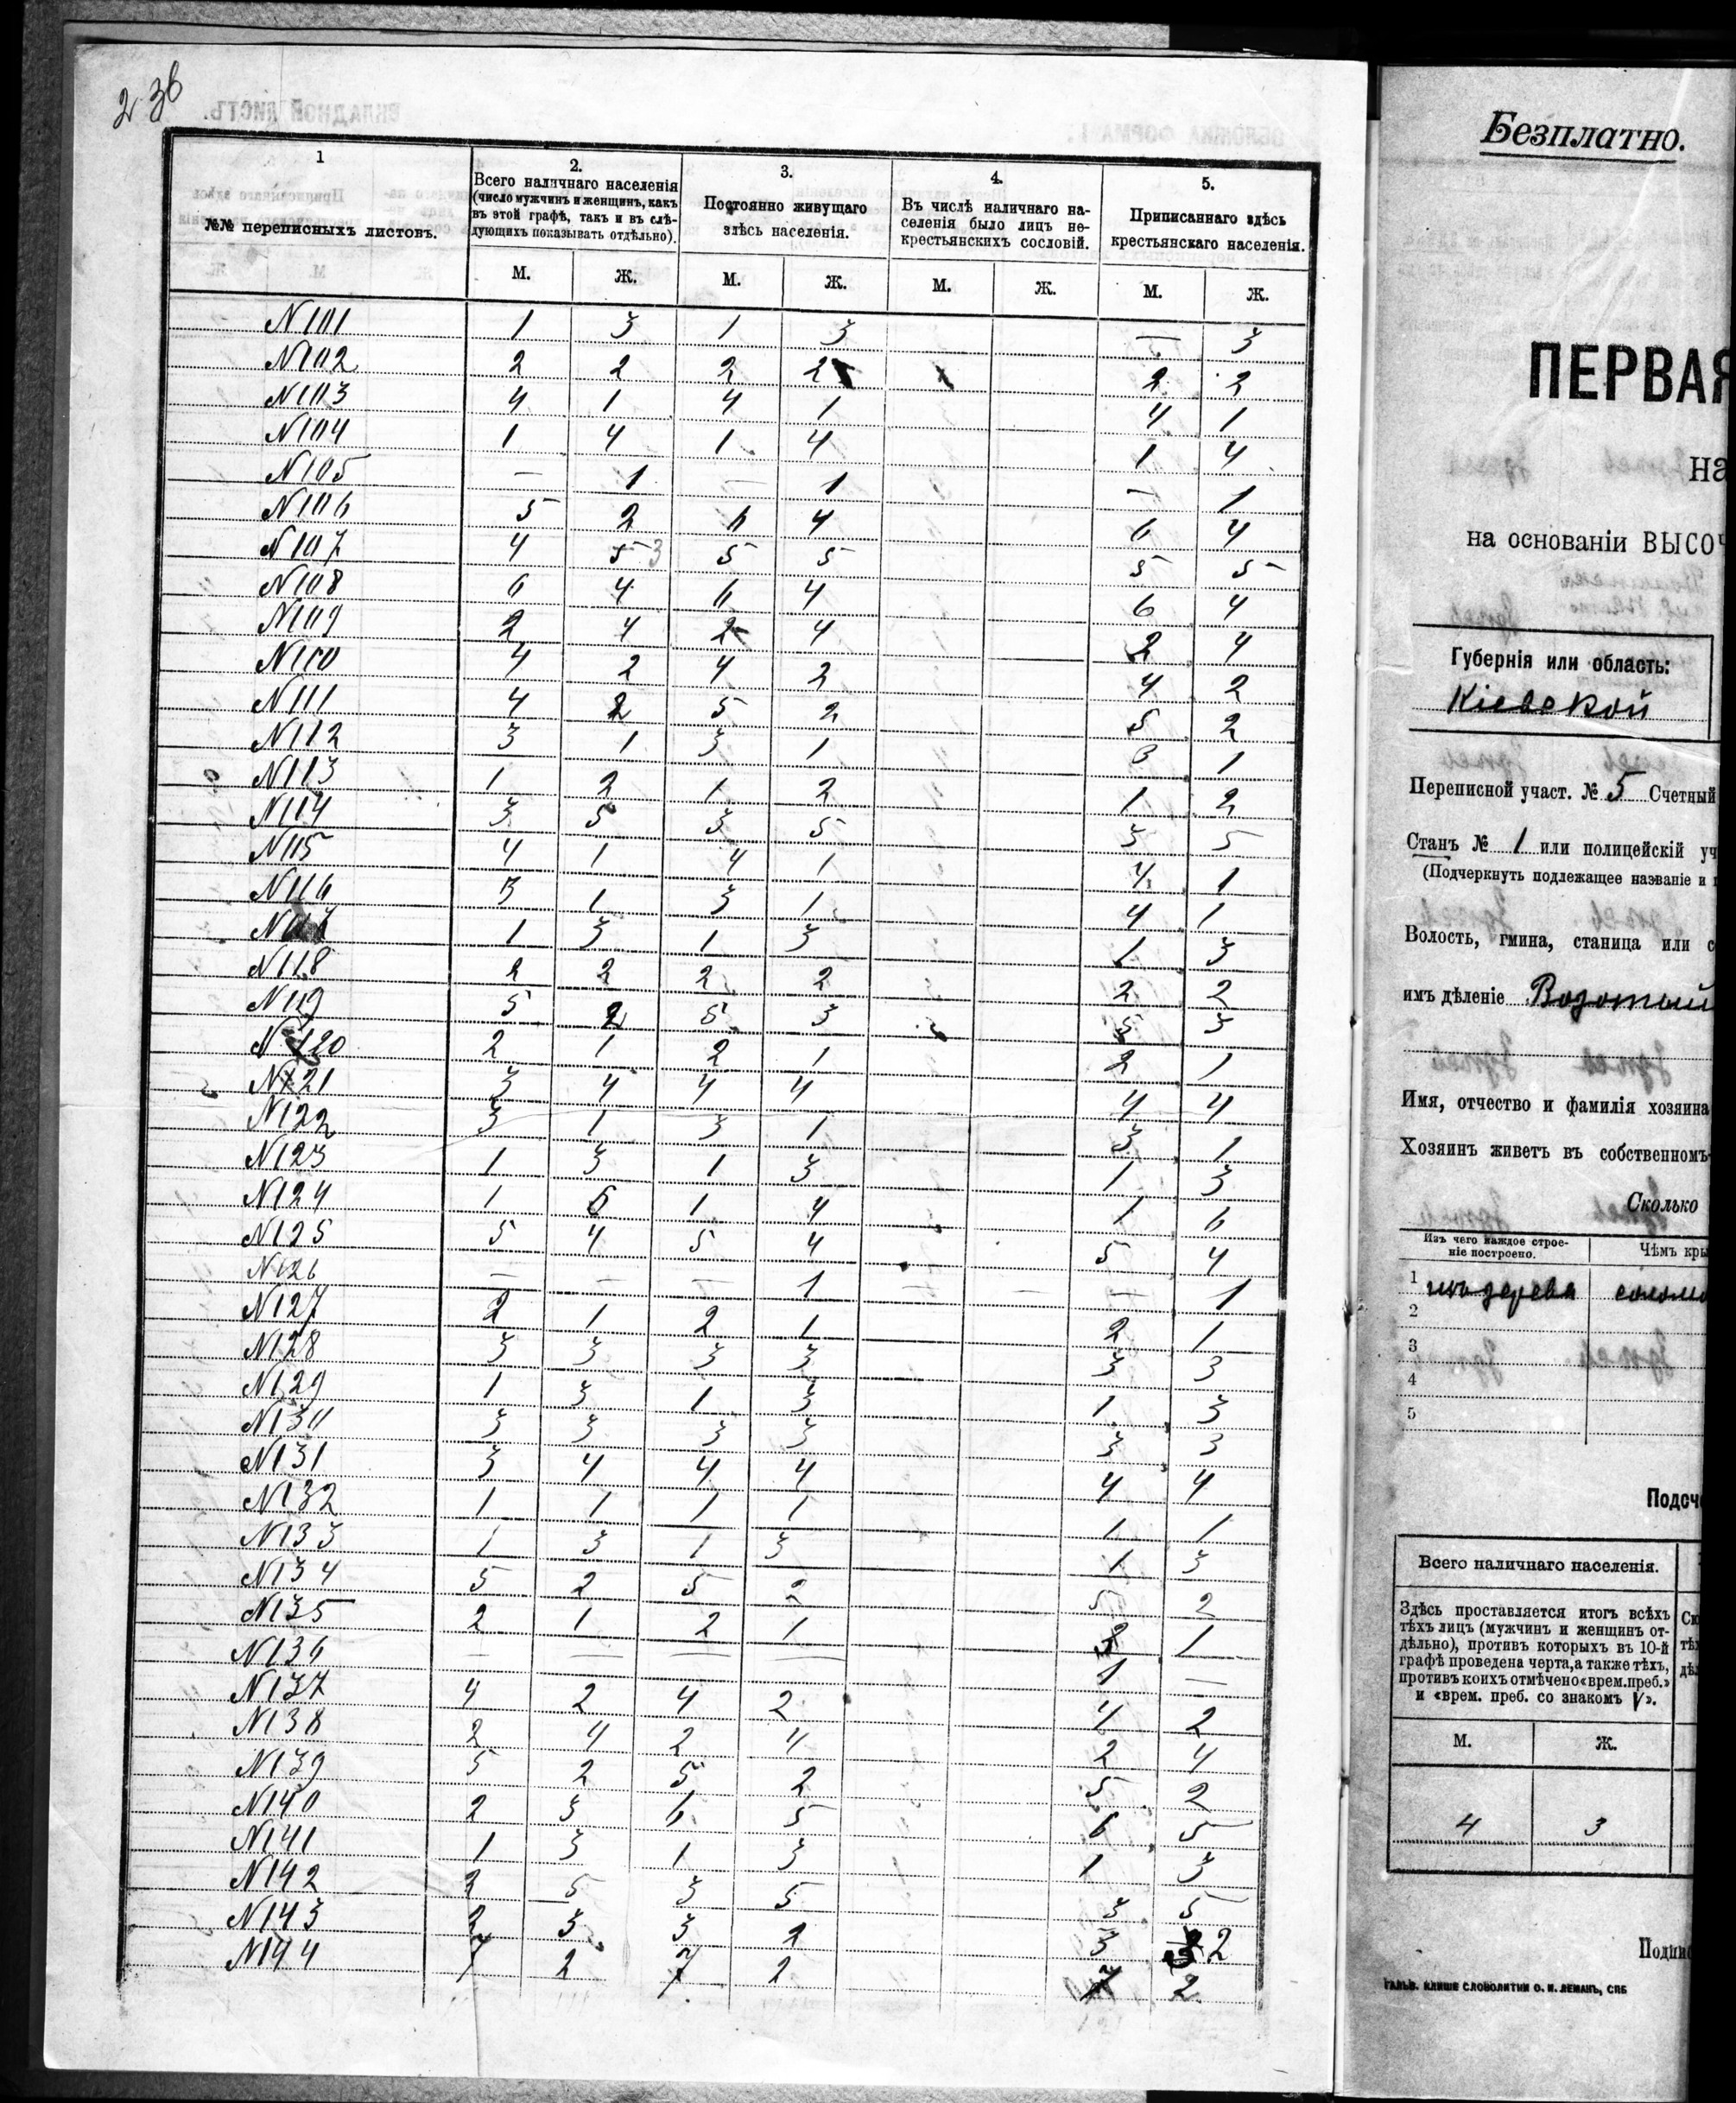 236
1
2.
3.
4.
5.
№№ переписныхъ листовъ.
Всего наличнаго населенія
(число мужчинъ и женщинъ, какъ
въ этой графѣ, такъ и въ слѣ-
дующихъ показывать отдѣльно).
Постоянно живущаго
здѣсь населенія.
Въ числѣ наличнаго на-
селенія было лицъ не-
крестьянскихъ сословій.
Приписаннаго здѣсь
крестьянскаго населенія.
М. Ж. М. Ж. М. Ж. М. Ж.
N101 1 3 1 3 — 3
N102 2 2 2 2 2 2
N103 4 1 4 1 4 1
N104 1 4 1 4 1 4
N105 — 1 — 1 — 1
N106 5 2 6 4 6 4
N107 4 5 3 5 5 5 5
N108 6 4 6 4 6 4
N109 2 4 2 4 2 4
N110 4 2 4 2 4 2
N111 4 2 5 2 5 2
N112 3 1 3 1 3 1
N113 1 2 1 2 1 2
N114 3 5 3 5 3 5
N115 4 1 4 1 4 1
N116 3 1 3 1 4 1
N117 1 3 1 3 1 3
N118 2 2 2 2 2 2
N119 5 2 5 3 5 3
N120 2 1 2 1 2 1
N121 3 4 4 4 4 4
N122 3 1 3 1 3 1
N123 1 3 1 3 1 3
N124 1 6 1 4 1 6
N125 5 4 5 4 5 4
N126 — — — 1 — — — 1
N127 2 1 2 1 2 1
N128 3 3 3 3 3 3
N129 1 3 1 3 1 3
N130 3 3 3 3 3 3
N131 3 4 4 4 4 4
N132 1 1 1 1 1 1
N133 1 3 1 3 1 3
N134 5 2 5 2 5 2
N135 2 1 2 1 1
N136 — — — — 1 —
N137 4 2 4 2 4 2
N138 2 4 2 4 2 4
N139 5 2 5 2 5 2
N140 2 3 6 5 6 5
N141 1 3 1 3 1 3
N142 2 5 3 5 3 5
N143 2 3 3 2 3 2
N144 7 2 7 2 7 2
Безплатно.
ПЕРВАЯ
на
на основаніи ВЫСОЧ
Губернія или область:
Кіевской
Переписной участ. № 5 Счетный
Станъ № 1 или полицейскій уч
(Подчеркнуть подлежащее названіе и
Волость, гмина, станица или с
имъ дѣленіе
Имя, отчество и фамилія хозяина
Хозяинъ живетъ въ собственномъ
Сколько
Изъ чего каждое строе-
ніе построено.
Чѣмъ кры
1 изъ дерева солом
2
3
4
5
Подсч
Всего наличнаго населенія.
Здѣсь проставляется итогъ всѣхъ
тѣхъ лицъ (мужчинъ и женщинъ от-
дѣльно), противъ которыхъ въ 10-й
графѣ проведена черта, а также тѣхъ,
противъ коихъ отмѣчено «врем. преб.»
и «врем. преб. со знакомъ V».
М. Ж.
4 3
Подпи
ГАЛЬВ. КЛИШЕ СЛОВОЛИТНИ О. И. ЛЕМАНЪ, СПБ